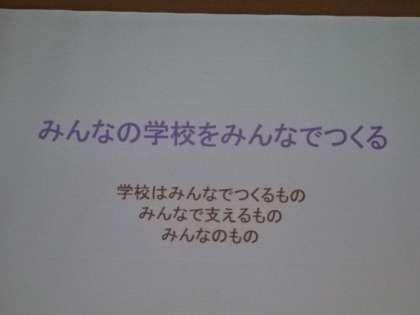 みんなの学校をみんなでつくる
学校はみんなでつくるもの
みんなで支えるもの
みんなのもの